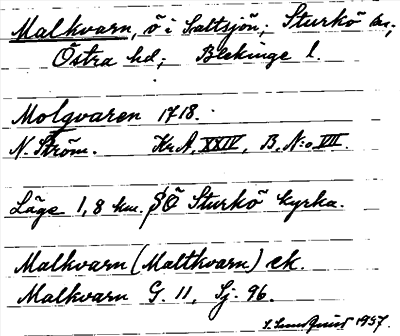 Malkvarn, ö i Saltsjön; Sturkö sn;
Östra hd; Blekinge l.
Molgvaren 1718.
N. Ström. Kr.A. XXIV, B. N:o VII.
Läge 1,8 km. SÖ Sturkö kyrka.
Malkvarn (Maltkvarn) ek.
Malkvarn G. 11, Sj. 96.
S. Lundquist 1937.